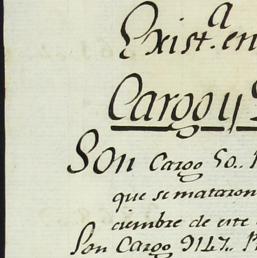 Exist.a en
Cargo y
Son Cargo 50..
que se mataron
ciembre de este
Son Cargo 9147..